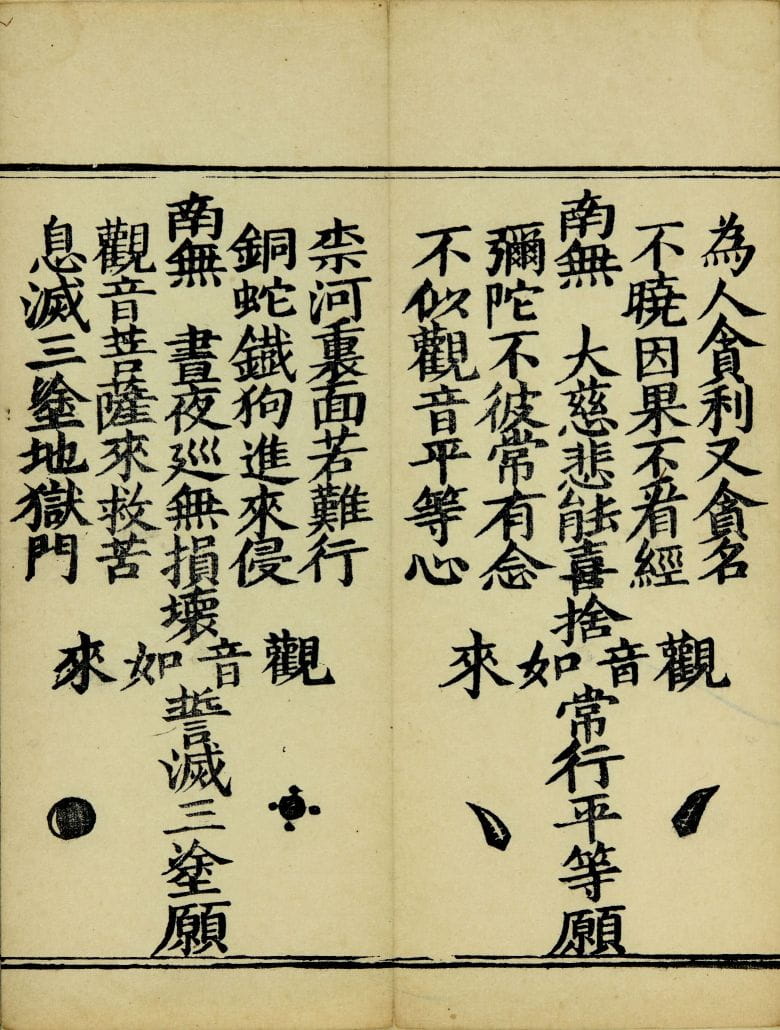 為人貪利又貪名
不曉因果不看經
南無 大慈悲能喜捨 常行平等願
彌陀不彼常有念
不似觀音平等心
觀音如來
柰河裏面若難行
銅蛇鐵狗進來侵
南無 晝夜巡無損壞 誓滅三塗願
觀音菩薩來救苦
息滅三塗地獄門
觀音如來